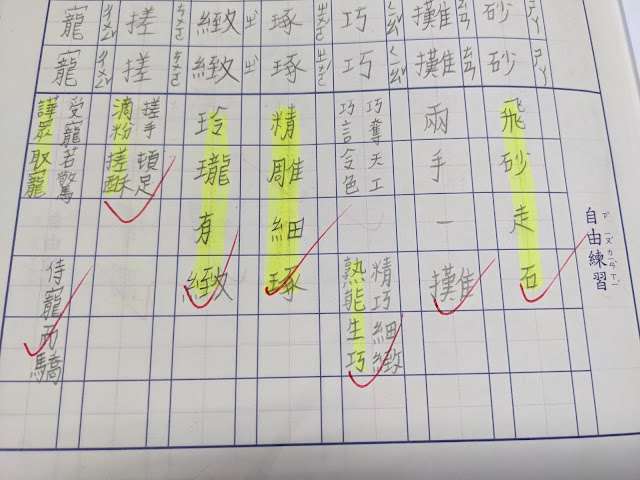 自由練習
ㄗˋ ㄧㄡˊ ㄌㄧㄢˋ ㄒㄧˊ
砂 ㄕㄚ
砂 ㄕㄚ
飛砂走石
攤 ㄊㄢ
攤 ㄊㄢ
兩手一攤
巧 ㄑㄧㄠˇ
巧 ㄑㄧㄠˇ
巧奪天工
精巧細緻
巧言令色
熟能生巧
琢 ㄓㄨㄛˊ
琢 ㄓㄨㄛˊ
精雕細琢
緻 ㄓˋ
緻 ㄓˋ
玲瓏有緻
搓 ㄘㄨㄛ
搓 ㄘㄨㄛ
搓手頓足
滴粉搓酥
寵 ㄔㄨㄥˇ
寵 ㄔㄨㄥˇ
受寵若驚
譁眾取寵
侍寵而驕